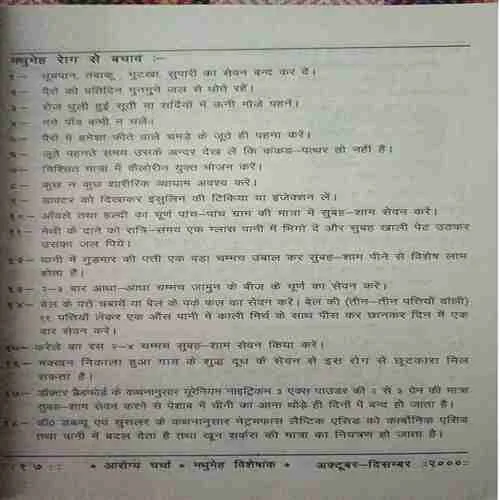 मधुमेह रोग से बचाव :–
१– धूम्रपान, तंबाकू, गुटखा, सुपारी का सेवन बन्द कर दें।
२– पैरों को प्रतिदिन गुनगुने जल से धोते रहें।
३– रोज धुली हुई सूती या सर्दियों में ऊनी मोजे पहनें।
४– नंगे पाँव कभी न चलें।
५– पैरों में हमेशा फीते वाले चमड़े के जूते ही पहना करें।
६– जूते पहनते समय उसके अन्दर देख लें कि कांकड़–पत्थर तो नहीं है।
७– निश्चित मात्रा में कैलोरीन युक्त भोजन करें।
८– कुछ न कुछ शारीरिक व्यायाम अवश्य करें।
९– डाक्टर को दिखाकर इंसुलिन की टिकिया या इंजेक्शन लें।
१०– आँवले तथा हल्दी का चूर्ण पांच–पांच ग्राम की मात्रा में सुबह–शाम सेवन करें।
११– मेथी के दाने को रात्रि–समय एक ग्लास पानी में भिगो दें और सुबह खाली पेट उठकर
उसका जल पिये।
१२– पानी में गुड़मार की पत्ती एक बड़ा चम्मच उबाल कर सुबह–शाम पीने से विशेष लाभ
होता है।
१३– २–३ बार आधा–आधा चम्मच जामुन के बीज के चूर्ण का सेवन करें।
१४– बेल के पत्ते चबायें या बेल के पके फल का सेवन करें। बेल की (तीन–तीन पत्तियों वाली)
११ पत्तियाँ लेकर एक औंस पानी में काली मिर्च के साथ पीस कर छानकर दिन में एक
बार सेवन करें।
१५– करेले का रस २–४ चम्मच सुबह–शाम सेवन किया करें।
१६– मक्खन निकाला हुआ गाय के शुद्ध दूध के सेवन से इस रोग से छुटकारा मिल
सकता है।
१७– डॉक्टर ब्रैडफोर्ड के कथनानुसार यूरेनियम नाइट्रिकम ३ एक्स पाउडर की २ से ३ ग्रेन की मात्रा
सुबह–शाम सेवन करने से पेशाब में चीनी का आना थोड़े ही दिनों में बन्द हो जाता है।
१८– डॉ0 डब्ल्यू एच सुसलर के कथनानुसार नेट्रमफास लैक्टिक एसिड को कार्बोनिक एसिड
तथा पानी में बदल देता है तथा खून सर्करा की मात्रा का नियंत्रण हो जाता है।
१७ :: * आरोग्य चर्चा * मधुमेह विशेषांक * अक्टूबर–दिसम्बर :२०००: